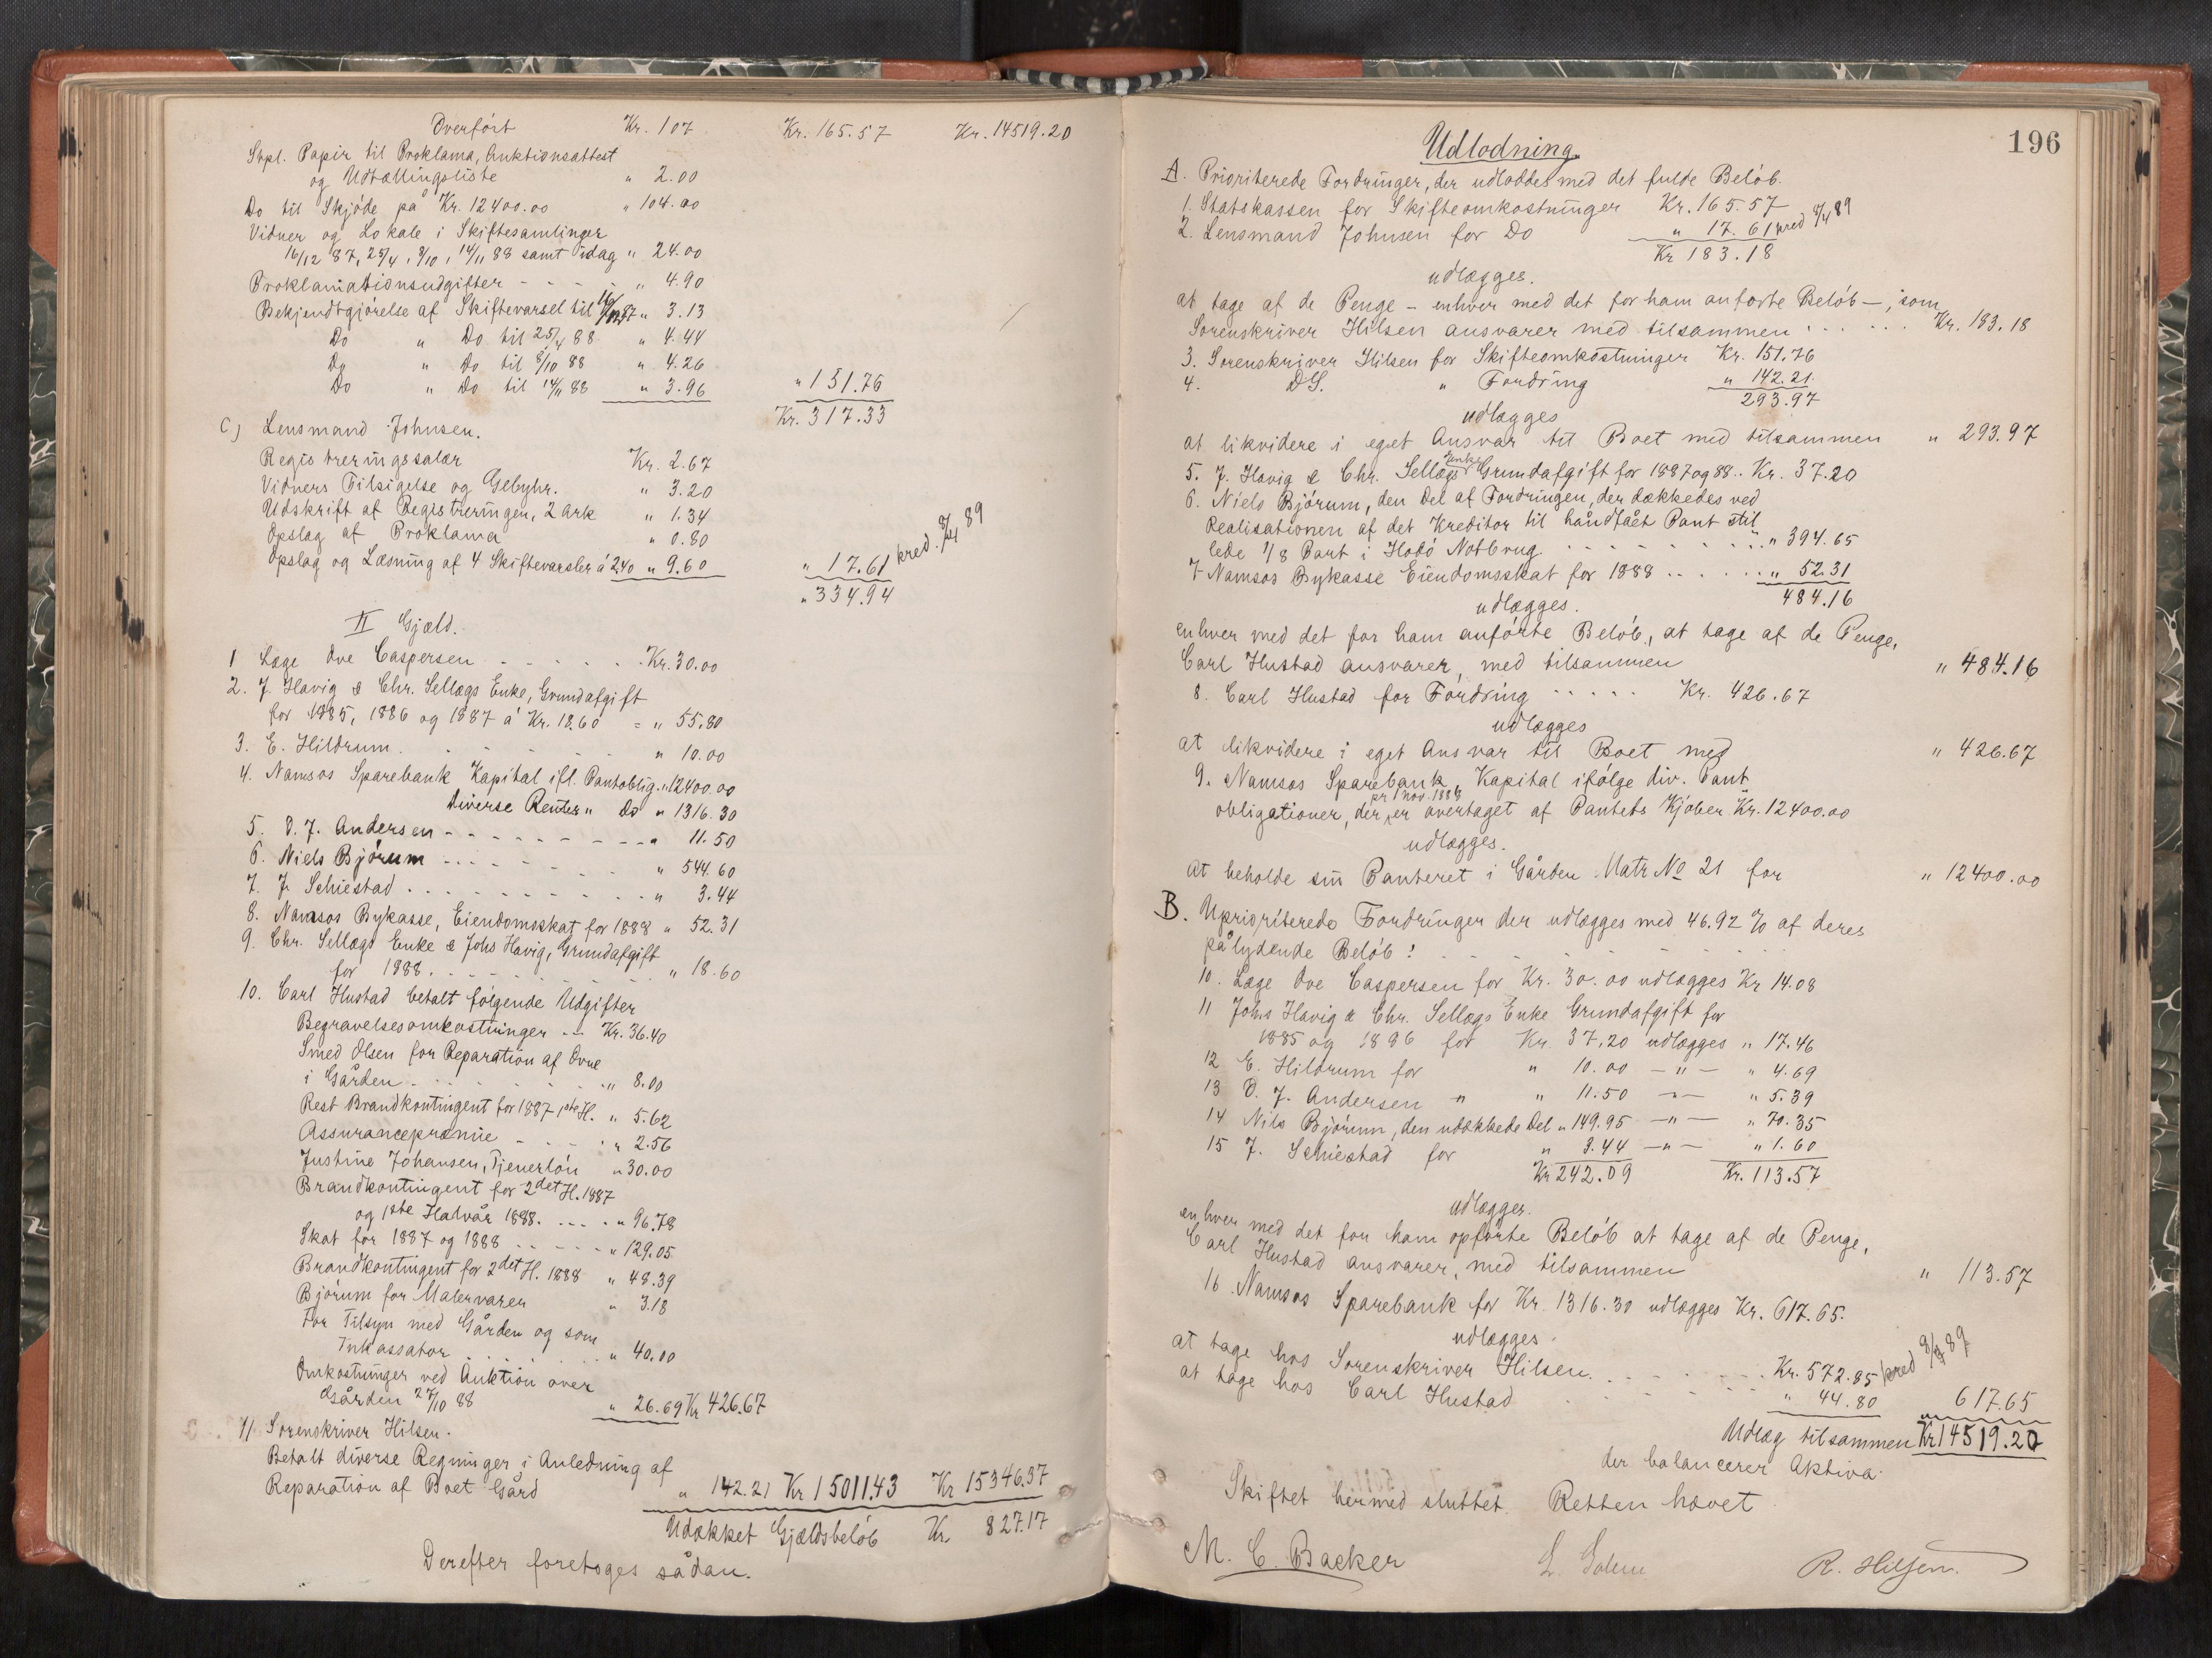 Overført Kr. 107 Kr. 165.57 Kr. 14519.20
Stpl. Papir til Proklama, Auktionsattest
og Udtællingsliste " 2.00
Do til Skjøde på Kr. 12400.00 " 104.00
Vidner og Lokale i Skiftesamlinger
16/12 87, 25/4, 8/10, 14/11 88 samt idag " 24.00
Proklamationsudgifter - - - " 4.90
Bekjendtgjørelse af Skiftevarsel til 16/12 87 " 3.13
Do " Do til 25/4 88 " 4.44
Do " Do til 8/10 88 " 4.26
Do " Do til 14/11 88 " 3.96 " 151.76
Kr. 317.33
C) Lensmand Johnsen.
Registreringssalær Kr. 2.67
Vidners Tilsigelse og Gebyhr. " 3.20
Udskrift af Registreringen, 2 Ark " 1.34
Opslag af Proklama " 0.80
Opslag og Læsning af 4 Skiftevarsler á 2.40 " 9.60 " 17.61 kred. 8/4 89
" 334.94
II Gjæld.
1 Læge Ove Caspersen - - - - - Kr. 30.00
2. J. Havig & Chr. Sellægs Enke, Grundafgift
for 1885, 1886 og 1887 á Kr. 18.60 = " 55.80
3. E. Hildrum. " 10.00
4. Namsos Sparebank Kapital ifl. Pantoblig. " 12400.00
Diverse Renter " Do " 1316.30
5. O. J. Andersen - - - - - - - " 11.50
6. Niels Bjørum - - - - " 544.60
7. J. Schiestad . . . . . . . . " 3.44
8. Namsos Bykasse, Eiendomsskat for 1888 " 52.31
9. Chr. Sellægs Enke & Johs Havig, Grundafgift
for 1888. - - - - - " 18.60
10. Carl Hustad betalt følgende Udgifter
Begravelsesomkostninger - - Kr. 36.40
Smed Olsen for Reparation af Ovne
i Gården - - - - - " 8.00
Rest Brandkontingent for 1887 1ste H. " 5.62
Assurancepræmie - - - " 2.56
Justine Johansen, Tjenerløn " 30.00
Brandkontingent for 2det H. 1887
og 1ste Halvår 1888. - - - - " 96.78
Skat for 1887 og 1888 - - - - - " 129.05
Brandkontingent for 2det H. 1888 " 48.39
Bjørum for Malervarer " 3.18
For Tilsyn med Gården og som
Inkassator - - - - - " 40.00
Omkostninger ved Auktion over
Gården 27/10 88 " 26.69 Kr 426.67
11 Sorenskriver Hilsen.
Betalt diverse Regninger i Anledning af
Reparation af Boet Gård " 142.21 Kr 15011.43 Kr 15346.37
Udækket Gjældsbeløb Kr 827.17
Derefter foretoges sådan.
196
Udlodning.
A. Prioriterede Fordringer, der udloddes med det fulde Beløb.
1. Statskassen for Skifteomkostninger Kr. 165.57
2. Lensmand Johnsen for Do " 17.61 kred 8/4 89
Kr 183.18
udlægges.
at tage af de Penge - enhver med det for ham anførte Beløb -, som
Sorenskriver Hilsen ansvarer med tilsammen . . . . . Kr. 183.18
3. Sorenskriver Hilsen for Skifteomkostninger Kr. 151.76
4. DS. " Fordring " 142.21.
293.97
udlægges
at likvidere i eget Ansvar til Boet med tilsammen " 293.97
5. J. Havig & Chr. Sellægs Enke Grundafgift for 1887 og 88.. Kr. 37.20
6. Niels Bjørum, den Del af Fordringen, der dækkedes ved
Realisationen af det Kreditor til håndfået Pant stil
lede 1/8 Part i Hodø Notbrug - - - - - - " 394.65
7 Namsos Bykasse Eiendomsskat for 1888 . . . . . " 52.31
484.16
udlægges.
enhver med det for ham anførte Beløb, at tage af de Penge,
Carl Hustad ansvarer, med tilsammen " 484.16
8. Carl Hustad for Fordring - - - - - Kr. 426.67
udlægges
at likvidere i eget Ansvar til Boet med " 426.67
9. Namsos Sparebank, Kapital ifølge div. Pant
pr 1 Nov. 1888
obligationer, der er overtaget af Pantets Kjøber Kr. 12400.00
udlægges.
at beholde sin Panteret i Gården Matr No 21 for " 12400.00
B. Uprioriterede Fordringer der udlægges med 46.92 % af deres
pålydende Beløb! - - - - - -
10. Læge Ove Caspersen for Kr. 30.00 udlægges Kr 14.08
11 Johs Havig & Chr. Sellægs Enke Grundafgift for
1885 og 1886 for Kr. 37,20 udlægges " 17.46
12 E. Hildrum for " 10.00 - " - " 4.69
13 O. J. Andersen " " 11.50 - " - " 5.39
14 Nils Bjørum, den udækkede Del " 149.95 - " - " 70.35
15 J. Schiestad for " 3.44 - " - " 1.60
Kr 242.09 Kr. 113.57
udlægges.
enhver med det for ham opførte Beløb at tage af de Penge,
Carl Hustad ansvarer, med tilsammen " 113.57
16. Namsos Sparebank for Kr. 1316.30 udlægges Kr. 617.65.
udlægges.
at tage hos Sorenskriver Hilsen. . - - - - . Kr. 572.85 kred 8/4 89
at tage hos Carl Hustad " 44.80 617.65
Udlæg tilsammen Kr 14519.20
der balancerer Aktiva.
Skiftet hermed sluttet. Retten hævet
M. C. Backer R. Hilsen.